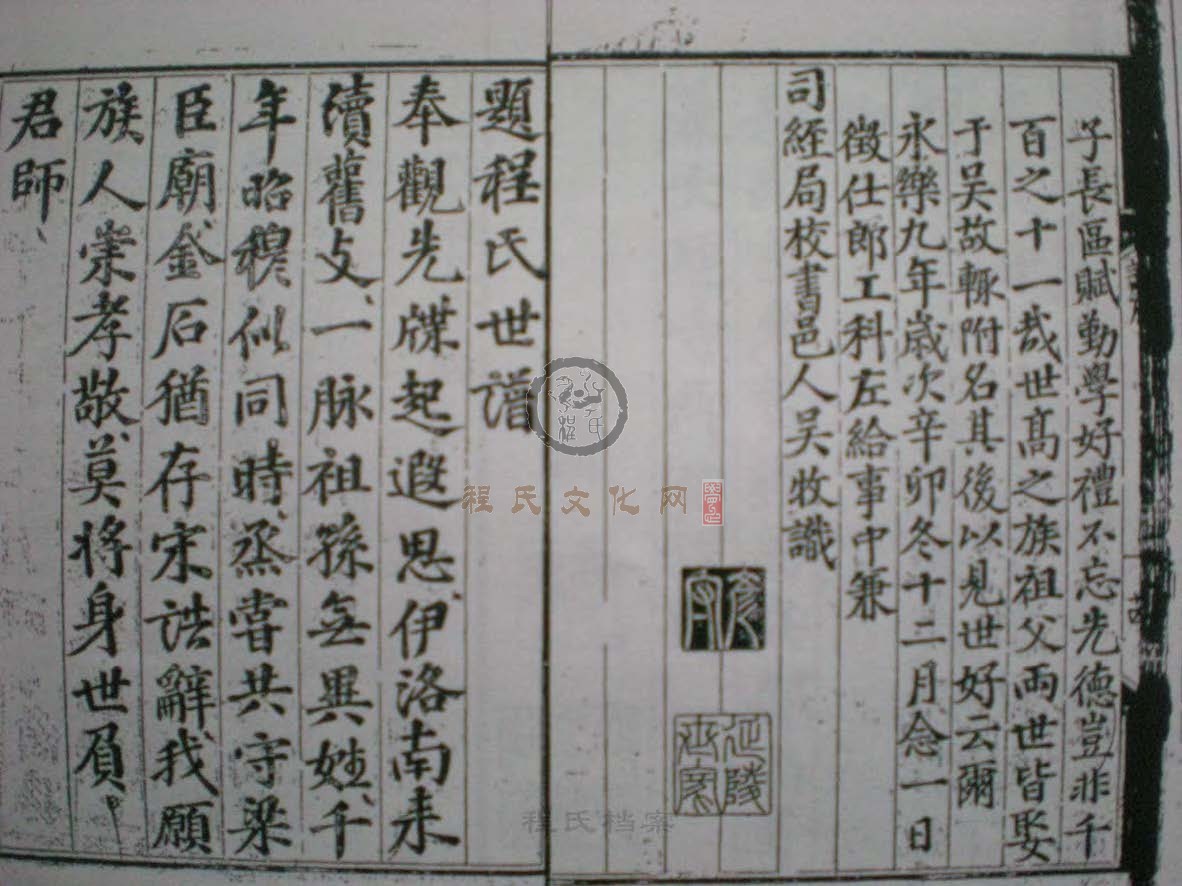 子長區賦勤學好禮不忘先德豈非千
百之十一哉世髙之族祖父兩世皆娶
于吳故輒附名其後以見世好云爾
永樂九年歲次辛卯冬十二月念一日
徵仕郎工科左給事中兼
司經局校書邑人吳牧識
延陵世家
題程氏世譜
奉觀先牒起遐思伊洛南来
續舊支、一脉祖孫無異姓、千
年昭穆似同時、烝嘗共守梁
臣廟、金石猶存宋誥辭、我願
族人崇孝敬、莫将身世負
君師、
程氏文化网
程氏档案